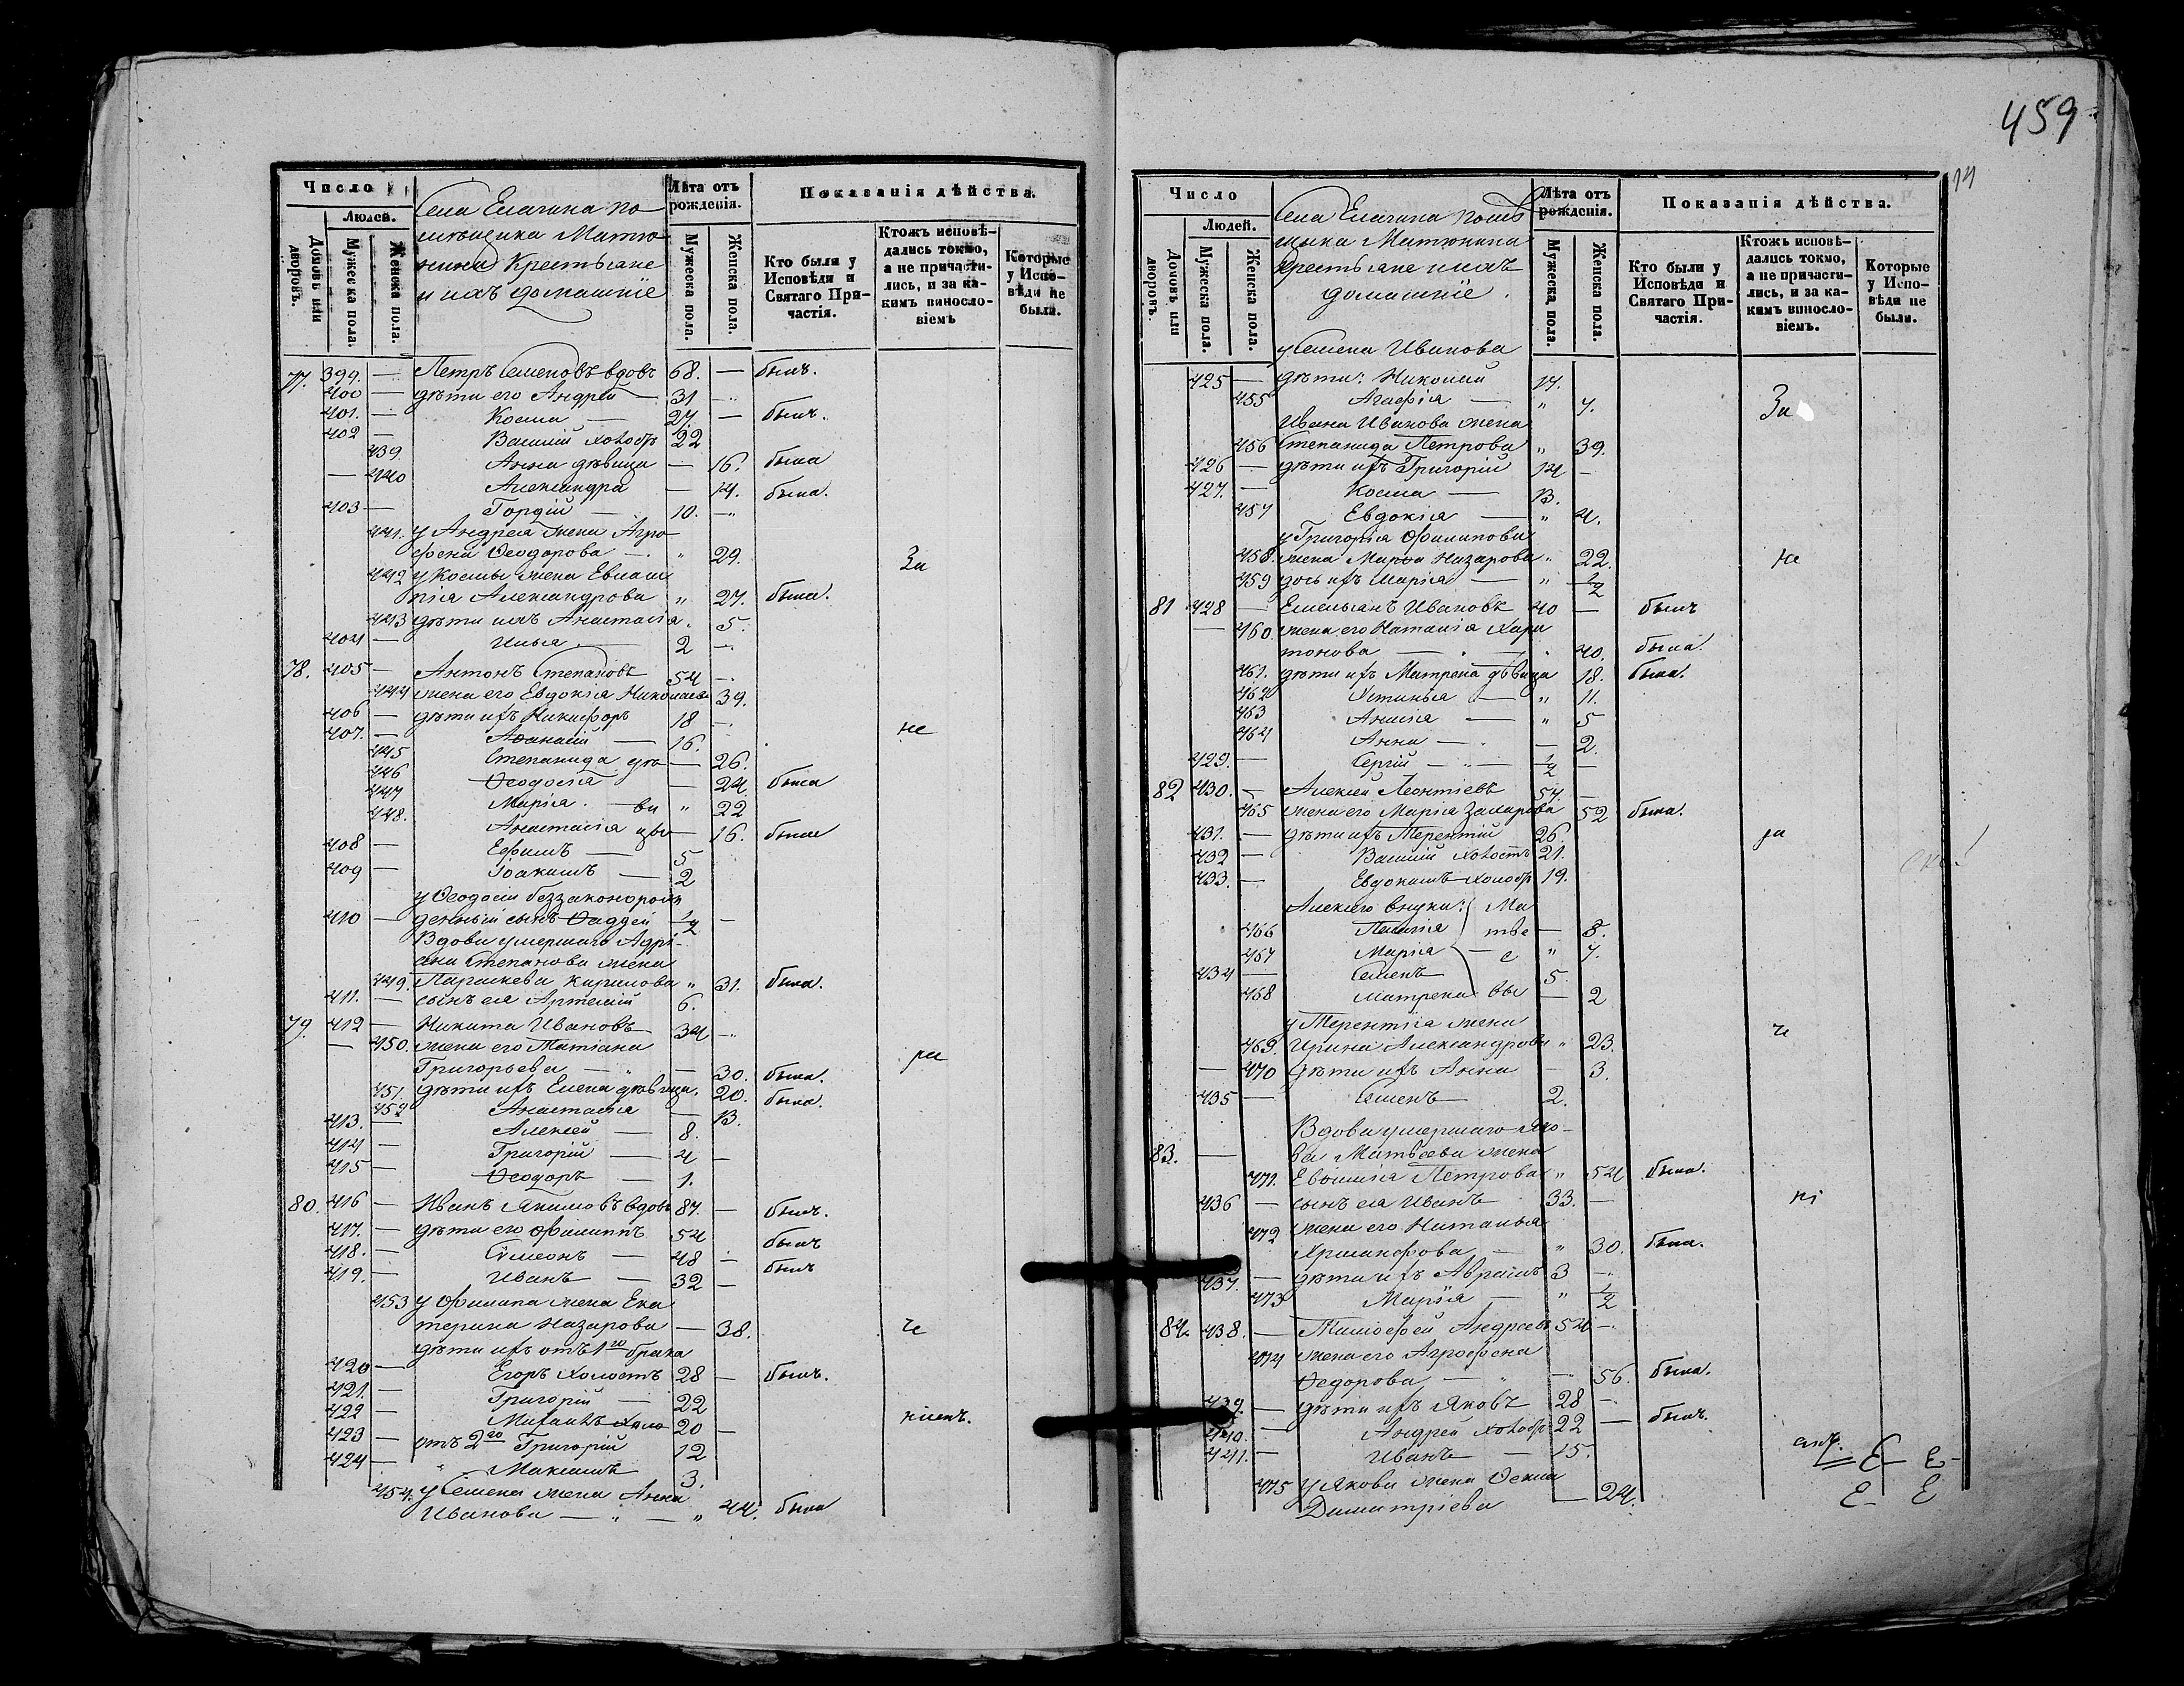 459
14
Число
Людей.
Домовъ или дворовъ.
Мужеска пола.
Женска пола.
Села Елагина по-
мѣщика Матю-
нина Крестьяне
и ихъ домашніе
Лѣта отъ рожденія.
Мужеска пола.
Женска пола.
Показанія дѣйства.
Кто были у Исповѣди и Святаго При-частія.
Ктожъ исповѣ-дались токмо, а не причасти-лись, и за ка-кимъ винослo-віемъ
Которые у Испо-вѣди не были.
77. 399. — Петръ Семеновъ вдовъ 68. — былъ.
400 — дѣти его Андрей — 31 —
401. — Косма — 27. — былъ.
402 — Василій холостъ 22
439. Анна дѣвица — 16. была
— 440 Александра — 14. была.
403 — Гордій — 10. —
441. у Андрея жена Агро-
фена Ѳеодорова — „ 29.
За
442 у Космы жена Евлам
пія Александрова „ 27. была.
443 дѣти ихъ Анастасія . 5.
404 — Илья — 2 —
78. 405 — Антонъ Степановъ 54 —
444 жена его Евдокія Николаева 39.
406 — дѣти ихъ Никифоръ 18 —
не
407. — Аѳанасій — 16.
445 Степанида дѣ — 26.
446 Ѳеодосія — 24. была
447 Марія — ви „ 22
448. Анастасія цы — 16. была
408 — Ефимъ — 5
409 — Іоакимъ — 2
у Ѳеодосіи беззаконорож
410 — денный сынъ Ѳаддей ½ —
Вдова умершаго Адрі-
ана Степанова жена
449. Параскева Карпова „ 31. была.
411. — сынъ ея Артемій 6.
79. 412 — Никита Ивановъ 34 —
— 450. жена его Татіана
ра
Григорьева — „ — 30. была.
451. дѣти ихъ Елена дѣвица. 20. была.
452 Анастасія — 13.
413. — Алексей — 8.
414 — Григорій — 4 —
415 — Ѳеодоръ — 1.
80. 416 — Иванъ Якимовъ вдовъ 87. — былъ.
417. — дѣти его Филиппъ 54 былъ
418. — Сѵмеонъ — 48 — былъ
419. — Иванъ — 32 —
453 у Филипа жена Ека
терина Назарова — 38.
че
дѣти ихъ отъ 1го брака
420 — Егоръ холостъ 28 — былъ.
421. — Григорій — 22
422 — Михаилъ холо 20 —
ніемъ.
423 — отъ 2го Григорій 12
424 — „ Максимъ 3.
454. у Семена жена Анна
Иванова — „ — „ 44. была
Число
Людей.
Домовъ или дворовъ.
Мужеска пола.
Женска пола.
Села Елагина помѣ
щика Матюнина
Крестьяне и ихъ
домашніе.
Лѣта отъ рожденія.
Мужеска пола.
Женска пола.
Показанія дѣйства.
Кто были у Исповѣди и Святаго При-частія.
Ктожъ исповѣ-дались токмо, а не причасти-лись, и за ка-кимъ винослo-віемъ.
Которые у Испо-вѣди не были.
у Семена Иванова
425 — дѣти: Николай 14.
455 Агафія — „ 7.
За
Ивана Иванова жена
456 Степанида Петрова „ 39.
426 — дѣти ихъ Григорій 14 —
427. — Косма — 13.
457 Евдокія — „ 4.
у Григорія Филипова
458. жена Марѳа Назарова „ 22.
не
459 дочь ихъ Марія — „ ½
81 428 — Емельянъ Ивановъ 40 — былъ
— 460. жена его Наталія Хари
тонова — „ — „ 40. была.
461. дѣти ихъ Матрена дѣвица 18. была.
462 Устинья — „ 11.
463 Анисія — „ 5
464 Анна — — 2.
429. — Сергій — ½ —
82 430. — Алексей Леонтіевъ 57 —
465 жена его Марія Захарова 52 была.
431. — дѣти ихъ Терентій 26.
ра
432 — Василій холостъ 21.
433. — Евдокимъ холостъ 19.
Алексея внуки: Ма
466 Пелагія тве — 8.
467 Марія — е „ 7.
434 — Семенъ 5.
468 Матрена вы — 2
у Терентія жена
че
469. Ирина Александрова „ 23.
— 470 дѣти ихъ Анна — 3.
435 — Семенъ — 2.
Вдова умершаго Яко-
83. — ва Матвеева жена
471. Евфимія Петрова „ 54 была.
436 — сынъ ея Иванъ 33. —
ні
472 жена его Наталья
Хрисанфова — „ 30. была.
437. — дѣти ихъ Авраамъ 3 —
473 Марія — „ ½
84. 438. — Тимофей Андреевъ 54 —
474 жена его Агрофена
Ѳедорова — „ — 56. была.
439. — дѣти ихъ Яковъ 28 —
440. — Андрей холостъ 22 — былъ.
441. — Иванъ — 15.
емъ.
475 у Якова жена Ѳекла
Димитріева — 24.